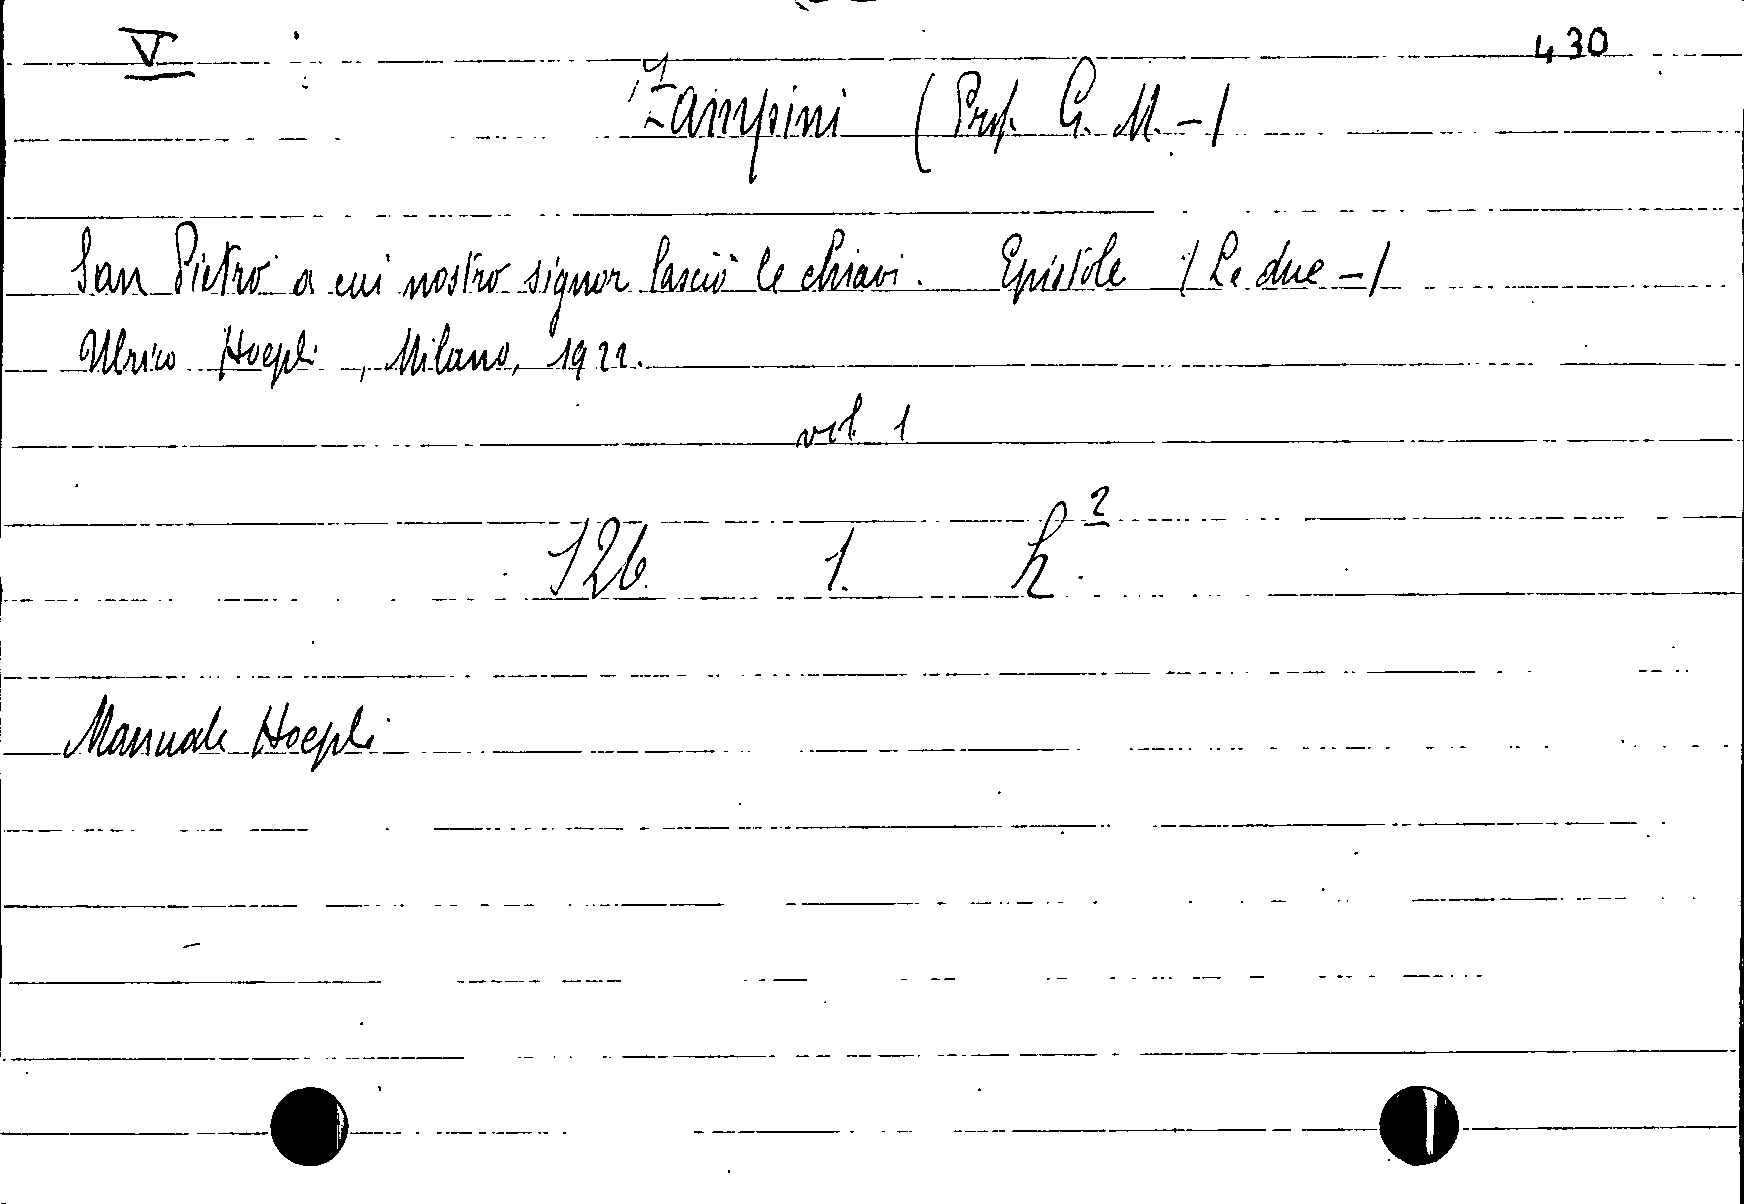 V 430
Zampini (Prof. G. M. -)
San Pietro a cui nostro signor lasciò le chiavi. Epistole (Le due -)
Ulrico Hoepli, Milano, 1922.
vol. 1
126. 1. h.2
Manuale Hoepli